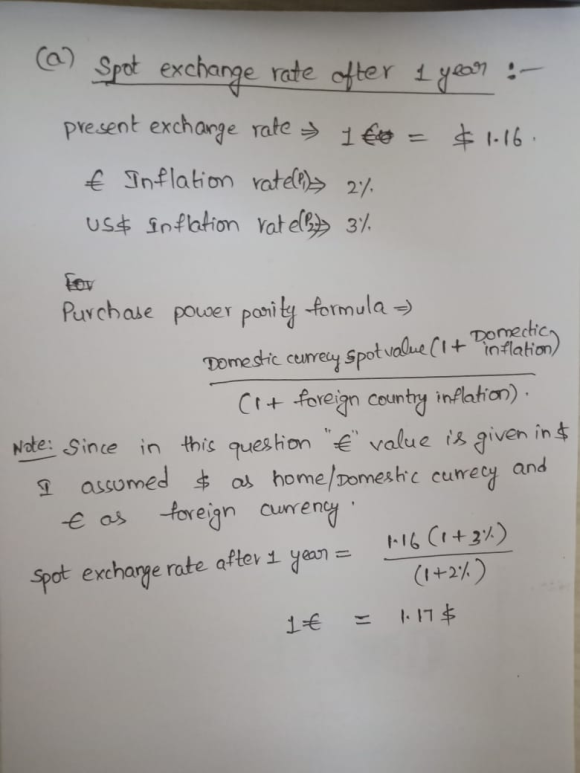 (a) Spot exchange rate after 1 year :-
present exchange rate ⇒ 1 € = $ 1.16.
€ Inflation rate(P1)⇒ 2%.
US$ Inflation rate(P2)⇒ 3%.
For
Purchase power parity formula ⇒
Domestic currecy spot value (1 + Domectic inflation)
(1 + foreign country inflation).
Note: Since in this question "€" value is given in $
I assumed $ as home/Domestic currecy and
€ as foreign currency.
Spot exchange rate after 1 year = 1.16 (1 + 3%)
(1+2%)
1€ = 1.17 $